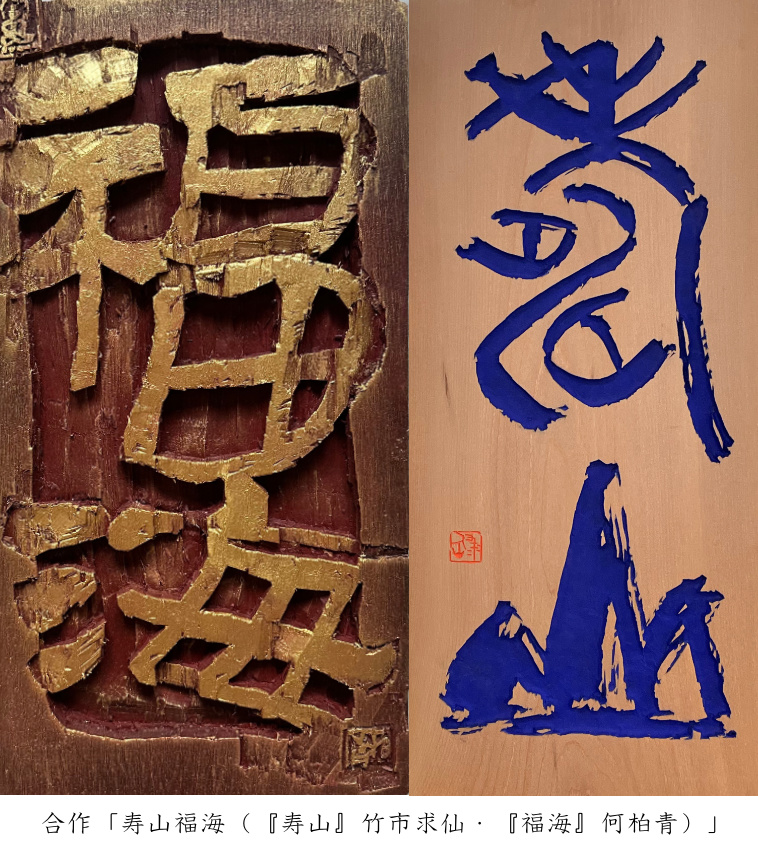 福海
寿山
合作「寿山福海（『寿山』竹市求仙・『福海』何柏青）」